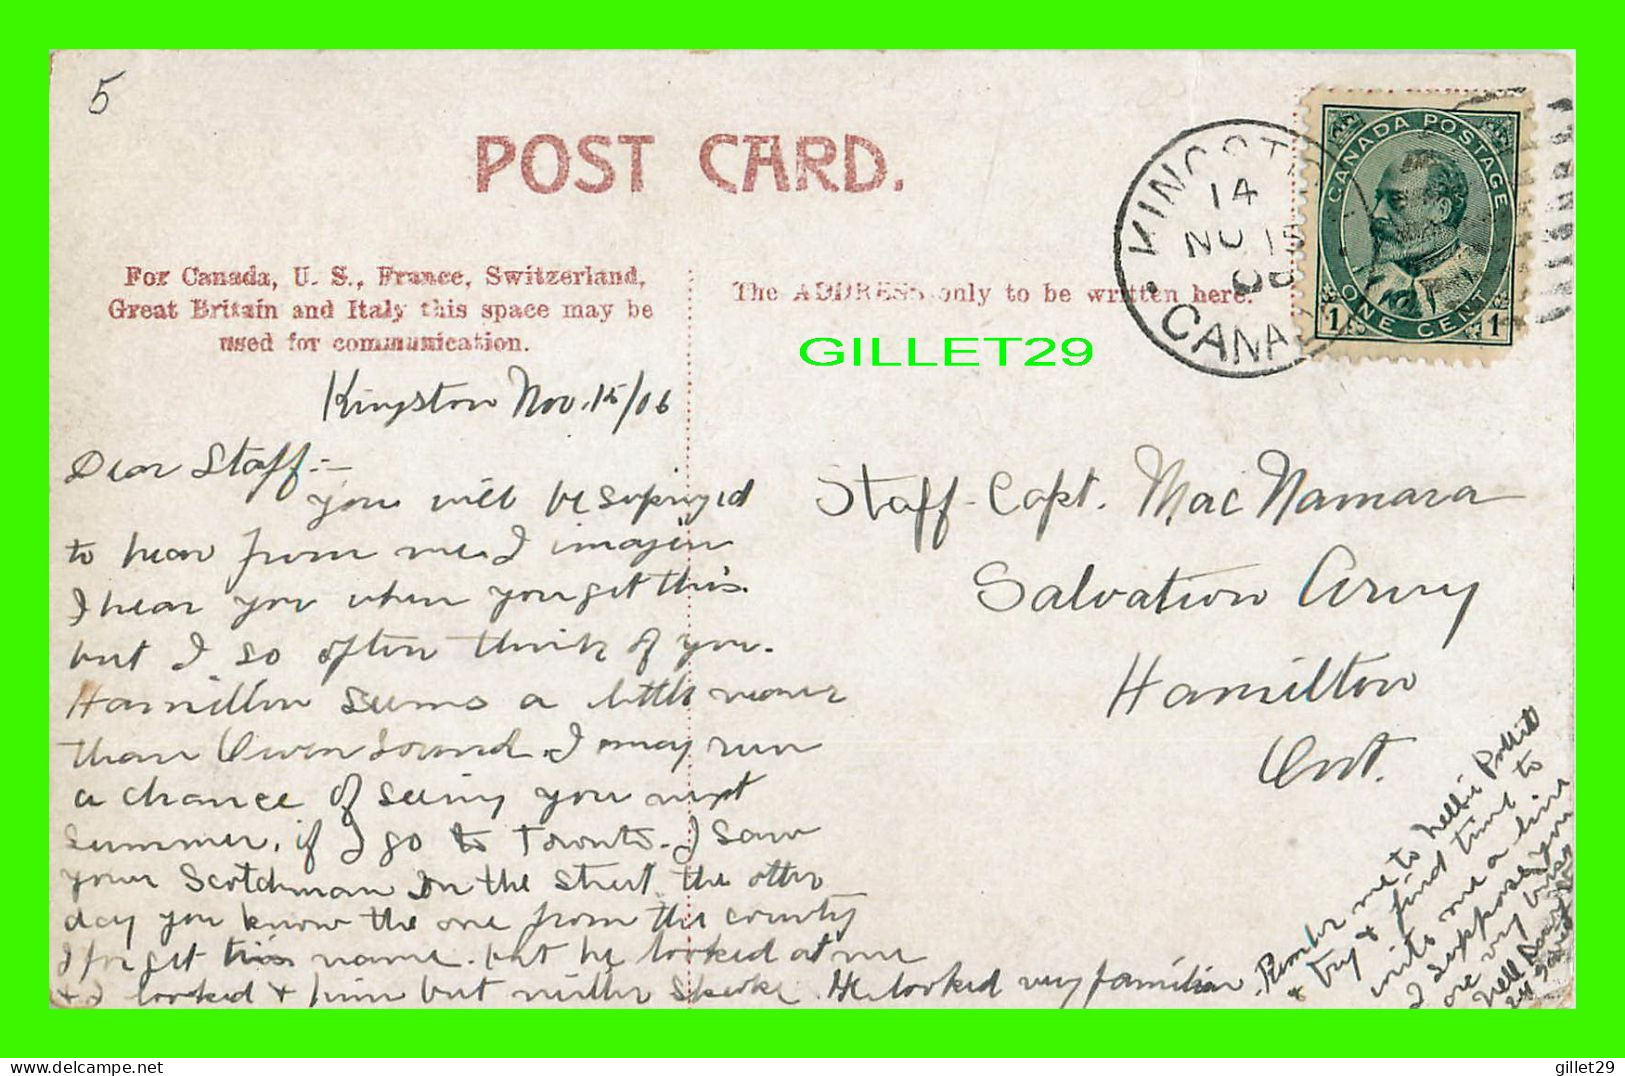 5
POST CARD.
For Canada, U. S., France, Switzerland,
Great Britain and Italy this space may be
used for communication.
The ADDRESS only to be written here.
KINGST
14
NO 15
06
CANA
CANADA POSTAGE
1 ONE CENT 1
GILLET29
Kingston Nov. 15/06
Dear Staff:-
you will be suprized
to hear from me. I imagin
I hear you when you get this.
but I so often think of you.
Hamilton seems a little nearer
than Owen Sound. I may run
a chance of seeing you next
summer, if I go to Toronto. I saw
your Scotchman on the street the other
day you know the one from the county
I forget his name. but he looked at me
& I looked & him but neither Spoke. He looked very familiar.
Staff-Capt. MacNamara
Salvation Army
Hamilton
Ont.
Rember me to Nellie
& try & find time to
write me a line
I suppose you
are very busy
Nell
gillet29